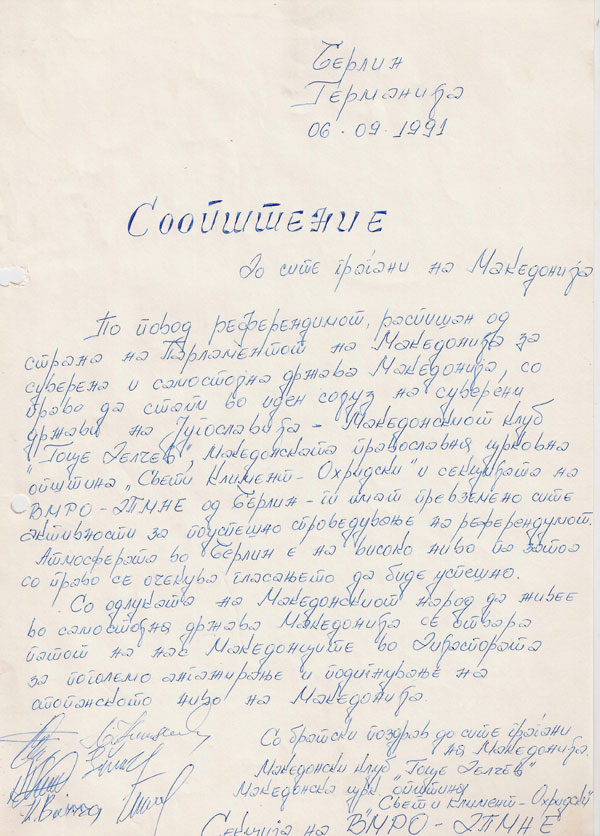 Берлин
Германија
06.09.1991
Соопштение
До сите граѓани на Македонија
По повод референдимот, распишан од
страна на Парламентот на Македонија за
суверена и самостојна држава Македонија, со
право да стапи во иден сојуз на суверени
држави на Југославија - Македонскиот клуб
"Гоце Делчев", Македонската православна црковна
општина "Свети Климент-Охридски" и секцијата на
ВМРО-ДПМНЕ од Берлин - ги имат превземено сите
активности за поуспешно спроведување на референдумот.
Атмосферата во Берлин е на високо ниво па затоа
со право се очекува гласањето да биде успешно.
Со одлуката на Македонскиот народ да живее
во самостојна држава Македонија се отвара
патот на нас Македонците во Дијаспората
за поголемо ангажирање и подигнување на
стопанското ниво на Македонија.
Со братски поздрав до сите граѓани
на Македонија.
Македонски Клуб "Гоце Делчев"
Македонска црк. општина
"Свети Климент-Охридски"
Секција на ВМРО-ДПМНЕ